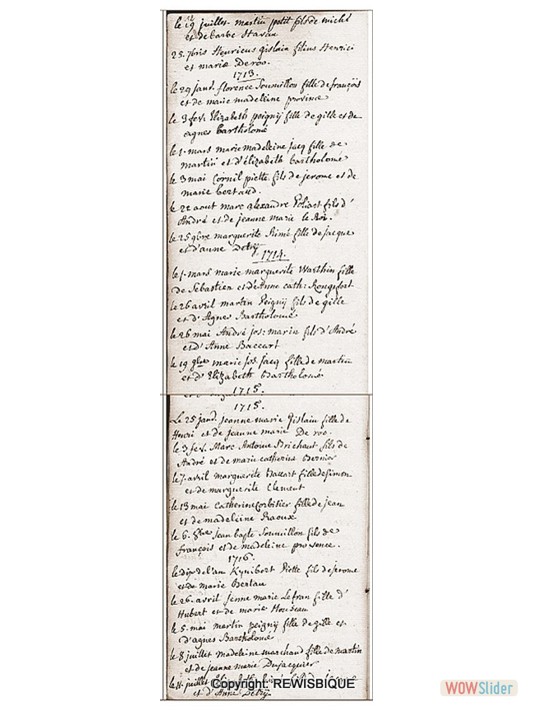 le 19 juillet martin petit fils de michel
et de barbe Stavau
25. 7bris Henricus gislain filius Henrici
et maria Deroo.
1713.
le 29 janv. florence Souvillon fille de françois
et de marie madeleine province
le 3 fev. Elizabeth peignÿ fille de gille et de
agnes bartholomé
le 1. mars marie madeleine jacq fille de
martin et d'élizabeth bartholomé
le 3 mai Cornil piette fils de jerome et de
marie bertaud.
le 22 aout marc alexandre fils d'
André et de jeanne marie le Roi.
le 25 9bre marguerite fille de jacque
et d'anne Detry
1714.
le 1. mars marie marguerite Warthin fille
de Sébastien et d'Anne cath: Rongefort
le 26 avril martin Peignÿ fils de gille
et d'Agnes Bartholomé
le 26 mai André jos: marin fils d'André
et d'Anne Baccart
le 19 9bre marie jos. jacq fille de martin
et d'Elizabeth bartholomé
1715.
1715.
Le 25 janv. jeanne marie Gislain fille de
Henri et de jeanne marie De roo.
le 3 fev. Marc Antoine Brichaut fils de
André et de marie catherine Bernier
le 7. avril marguerite Baccart fille de simon
et de marguerite Clement
le 13 mai Catherine Corbitier fille de jean
et de madeleine Raoux
le 6. 8bre jean bapte Souvillon fils de
François et de madeleine provence.
1716.
le de l'an Piette fils de jerome
et de marie Bertau
le 26. avril jenne marie Lefran fille d'
Hubert et de marie
le 5. mai martin peignÿ fille de gille et
d'agnes Bartholomé
le 8 juillet madeleine marchand fille de martin
et de jeanne marie Dujacquier
le 11 juillet
et d'Anne Detry.
Copyright: REWISBIQUE
WOWSlider